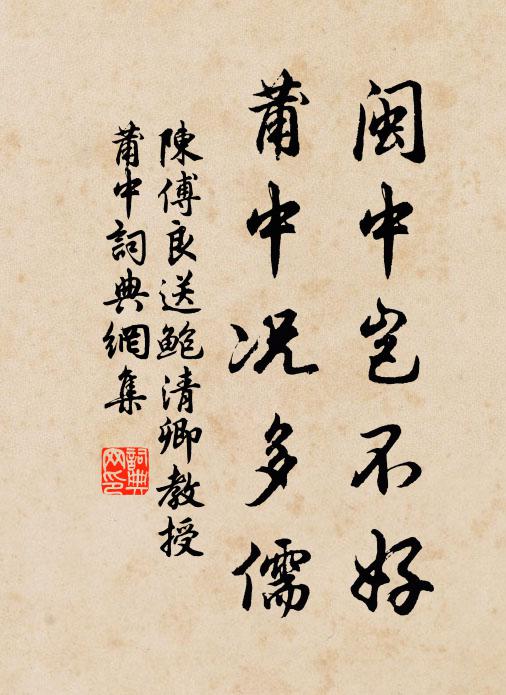 閩中岂不好
莆中况多儒
陳傅良送鮑清卿教授
莆中詞典網集
詞典
网印